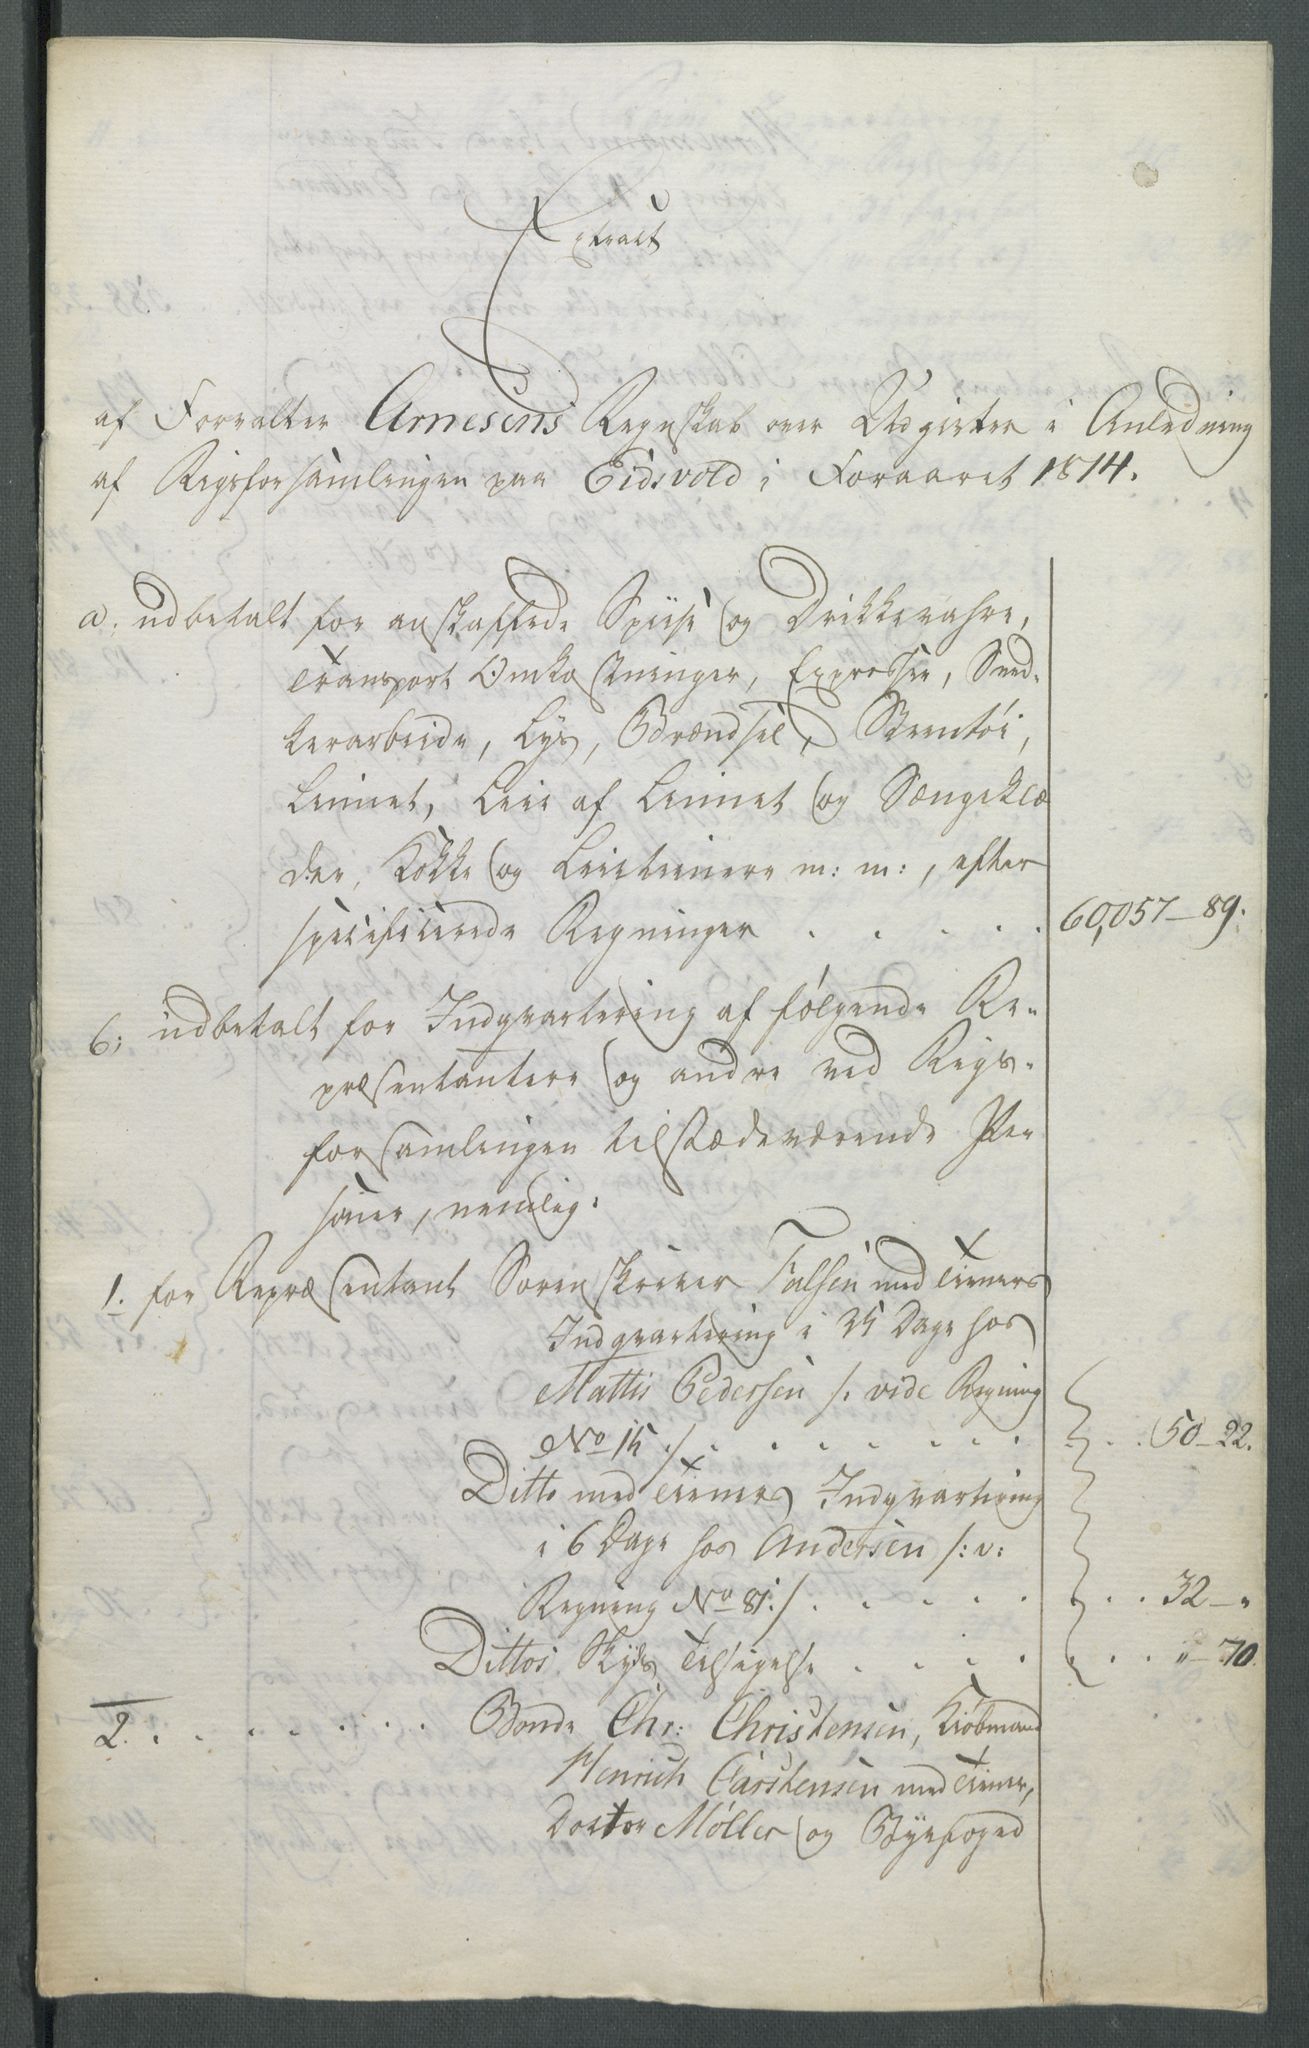 Extract
af Forvalter Arnesens Regnskab over Udgivter i Anledning
af Rigsforsamlingen paa Eidsvold i Foraaret 1814.
a, udbetalt for anskaffede Spiise og Drikkevahre,
Transport Omkostninger, Expresser, Sned-
kerarbeide, Lys, Brændsel, Steentöi,
Linnet, Leie af Linnet og Sængeklæ
der, Kokke og m: m:, efter
specificerede Regninger . . . . . 60,057 – 89.
b; udbetalt for Indqvartering af følgende Re-
præsentantere og andre ved Rigs-
forsamlingen tilstædeværende Per
soner, nemlig:
1. for Repræsentant Sorenskriver Falsen med Tieners
Indqvartering i 25 Dage hos
Mattis Pedersen /: vide Regning
No 15 :/ . . . . . . . . 50 – 22.
Ditto med Tieners Indqvartering
i 6 Dage hos Andersen /: v:
Regning No 81 :/ . . . . . . 32 – „
Dittos Skyds Tilsigelse . . . . . . „ – 70.
2. . . . . . . Bonde Chr: Christensen, Kiöbmand
Henrich Carstensen med Tiener,
Doctor Møller og Byefoged